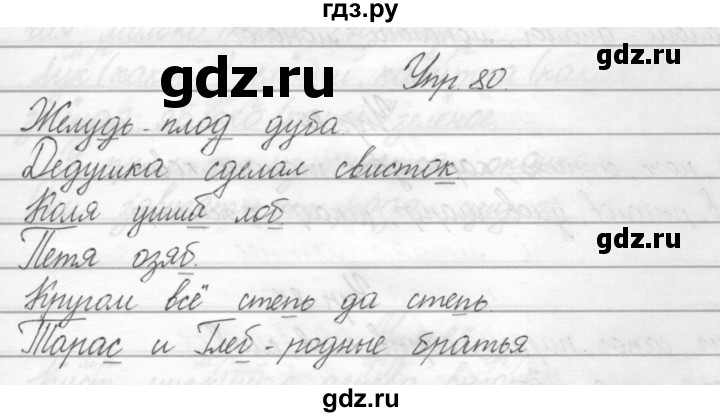 гдз.ру
gdz.ru
gdz.ru
Упр. 80.
Желудь - плод дуба.
Дедушка сделал свисток
Коля ушиб лоб
gdz.ru
Петя озяб.
Кругом всё степь да степь.
Тарас и Глеб - родные братья